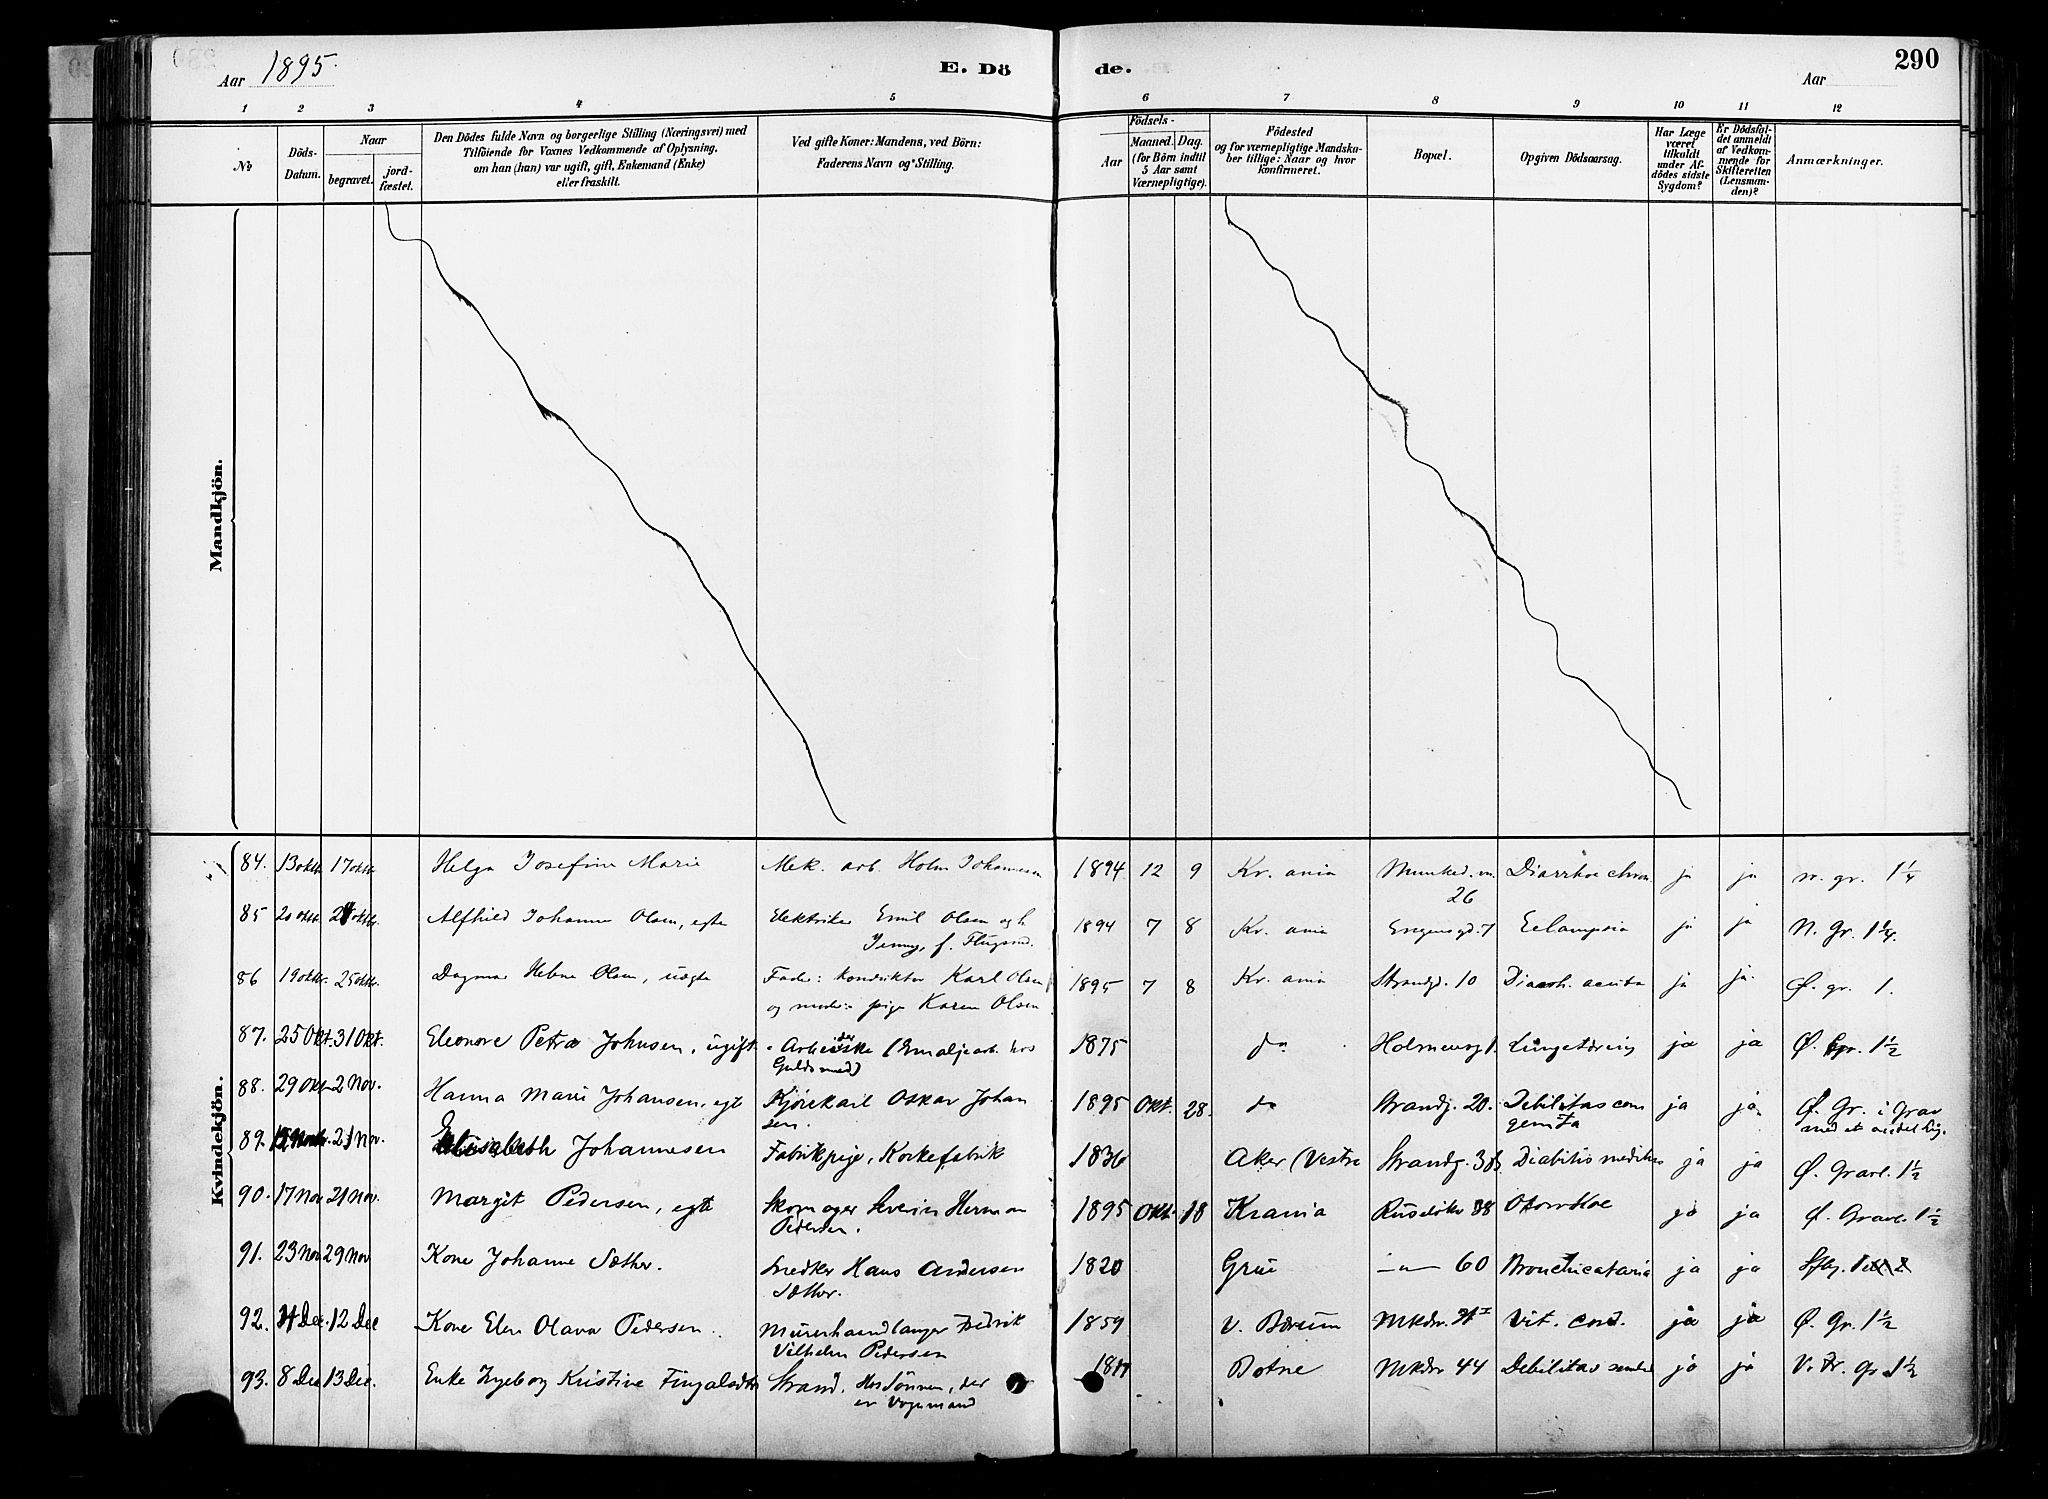 290
Aar 1895.
E. Dö
de.
Aar
1 2 3 4 5 6 7 8 9 10 11 12
No
Döds-
Datum.
Naar
begravet.
jord-
fæstet.
Den Dödes fulde Navn og borgerlige Stilling (Næringsvei) med
Tilföiende for Voxnes Vedkommende af Oplysning,
om han (hun) var ugift, gift, Enkemand (Enke)
eller fraskilt.
Ved gifte Koner: Mandens, ved Börn:
Faderens Navn og Stilling.
Födsels-
Aar
Maaned. Dag.
(for Börn indtil
5 Aar samt
Værnepligtige).
Födested
og for værnepligtige Mandska-
ber tillige: Naar og hvor
konfirmeret.
Bopæl.
Opgiven Dödsaarsag.
Har Læge
været
tilkaldt
under Af-
dödes sidste
Sygdom?
Er Dödsfal-
det anmeldt
af Vedkom-
mende for
Skifteretten
(Lensman-
den)?
Anmærkninger.
Mandkjön.
Kvindekjön.
84. 13 oktr. 17 oktr. Helga Josefine Marie Mek. arb. Holm Johannesen 1894. 12 9 Kr. ania 26 Diarrhoe chron. ja ja n. gr. 1 1/4
85 20 oktr. oktr. Alfhild Johanne Olsen, egte Elektriker Emil Olsen og h.
Jenny, f. 1894 7 8 Kr. ania Engensgd. 7 Eclampsia ja ja N. Gr. 1 1/4.
86 19 oktr. 25 oktr. Dagmar Helene Olsen, uegte Fader: Konduktør Karl Olsen
og moder: pige Karen Olsen 1895 7 8 Kr. ania Strandgd. 10 Diarrh. acuta ja ja. Ø. gr. 1.
87. 25 Okt. 31 Okt. Eleonore Petra Johnsen, ugift. Arbeiderske (Emaljearb. hos
Guldsmed) 1875 do Lungetæring ja ja Ø. Gr. 1 1/2
88. 29 Okt. 2 Nov. Hanna Marie Johansen, egt Kjørekarl Oskar Johan
sen. 1895 Okt. 28. do Strandg. 20. Debilitas con
genita ja ja Ø. Gr. i Grav
med et andet Lig.
89. Nov. 21 Nov. Elisabeth Johannesen Fabrikpige, Korkefabrik 1836 Aker (Vestre Strandg. Diabitis ja ja Ø. Gravl. 1 1/2
90. 17 Nov 21 Nov. Margit Pedersen, egt Skomager Severin Herman
Pedersen. 1895 Okt. 18 Krania 38 ja ja Ø. Gravl. 1 1/2
91. 23 Nov 29 Nov Kone Johanne Sæther. Snedker Hans Andersen
Sæther. 1820 Grue — " — 60 ja ja
92. Dec. 12 Dec Kone Elen Olava Pedersen. Murerhaandlanger Fredrik
Vilhelm Pedersen 1859 V. Bærum Vit. cord. ja ja Ø. Gr. 1 1/2
93. 8 Dec 13 Dec. Enke Ingeborg Kristine Strand. Hos Sønnen, der
er Vognmand Botne 44 Debilitas senilis ja ja V. Fr. gr 1 1/2